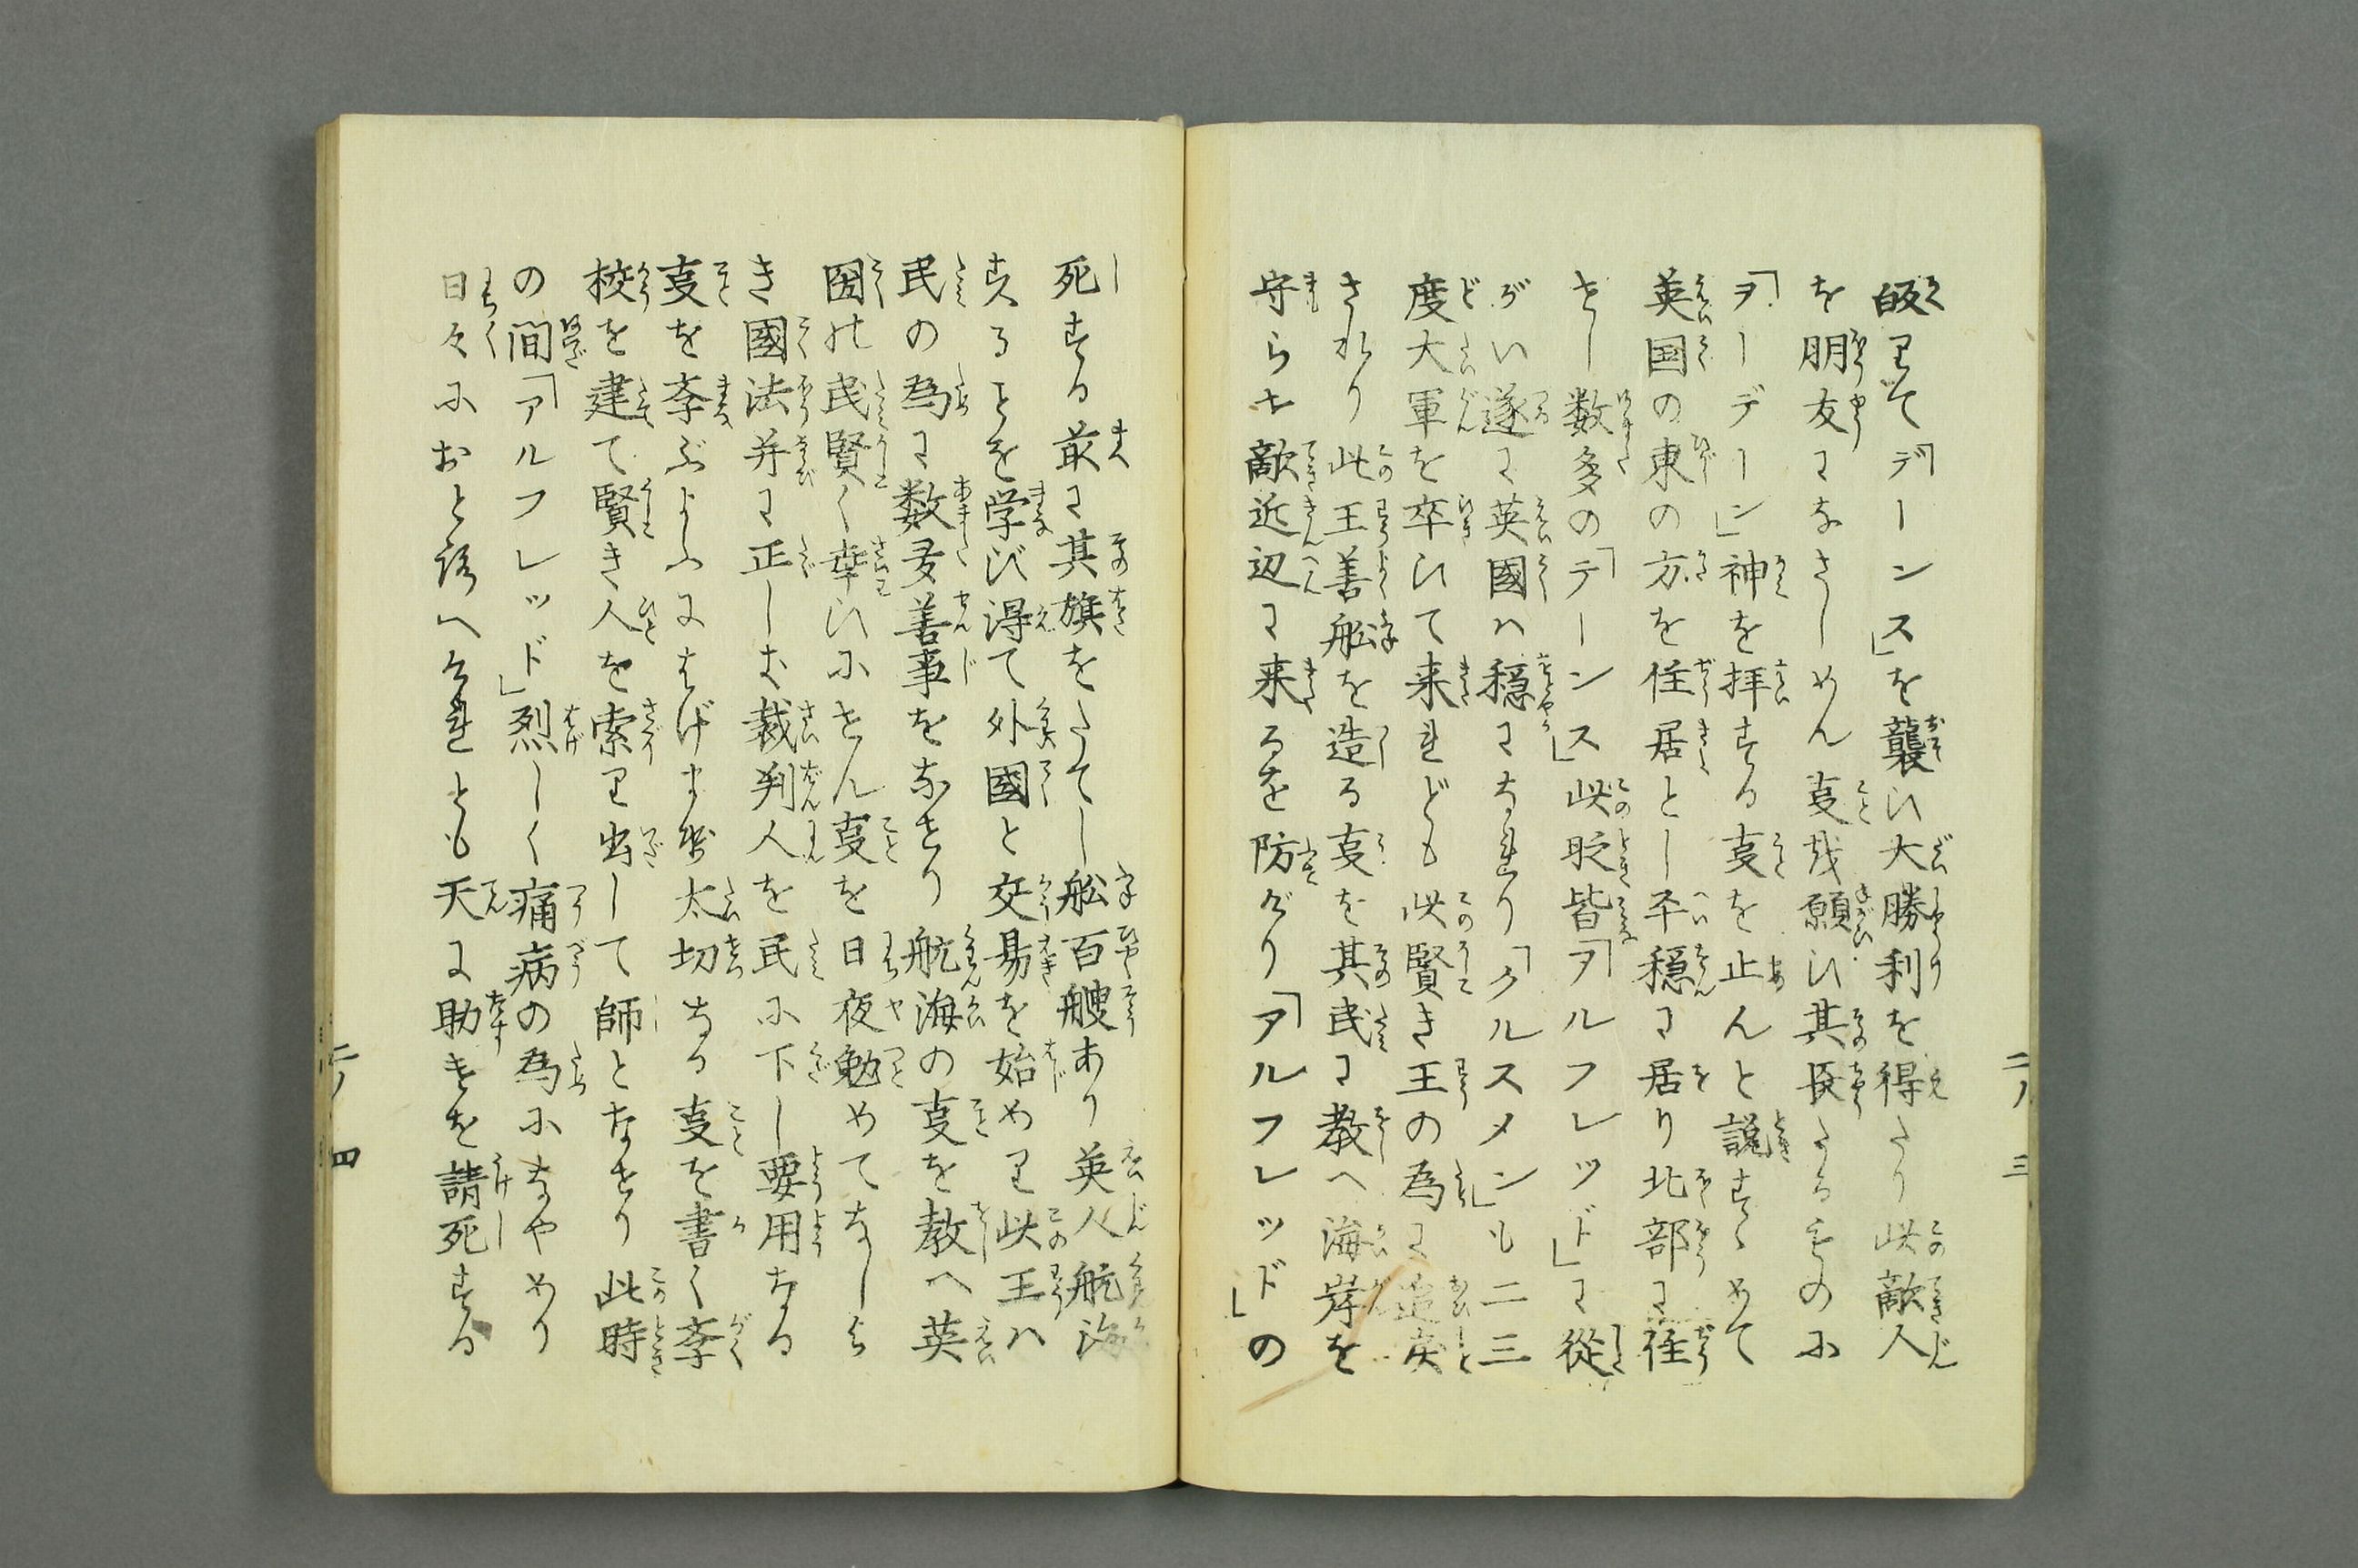 皈りて「デーンス」を襲ひ大勝利を得たり此敵人
を朋友になさしめん叓哉願ひ其長たるものに
「ヲーデーン」神を拝する叓を止んと説すゝめて
英国の東の方を住居とし平穏に居り北部に住
せし数多の「デーンス」此时皆「アルフレッド」に從
がい遂に英國ハ穏になれり「クルスメン」も二三
度大軍を卒ひて来れども此賢き王の為に追戻
されり此王善舩を造る叓を其民に教へ海岸を
守らせ敵近辺に来るを防げり「アルフレッド」の
死する前に其旗をたてし舩百艘あり英人航海
することを学び得て外國と交易を始めり此王ハ
民の為に数多善事をなせり航海の叓を教へ英
国の民賢く幸ひにせん叓を日夜勉めてなしよ
き國法并に正しき裁判人を民に下し要用なる
叓を斈ぶようにはげませ太切なる叓を書く斈
校を建て賢き人を索り出して師となせり此時
の間「アルフレッド」烈しく痛病の為になやめり
日々におとろへけれとも天に助けを請死する
二ノ三
二ノ四